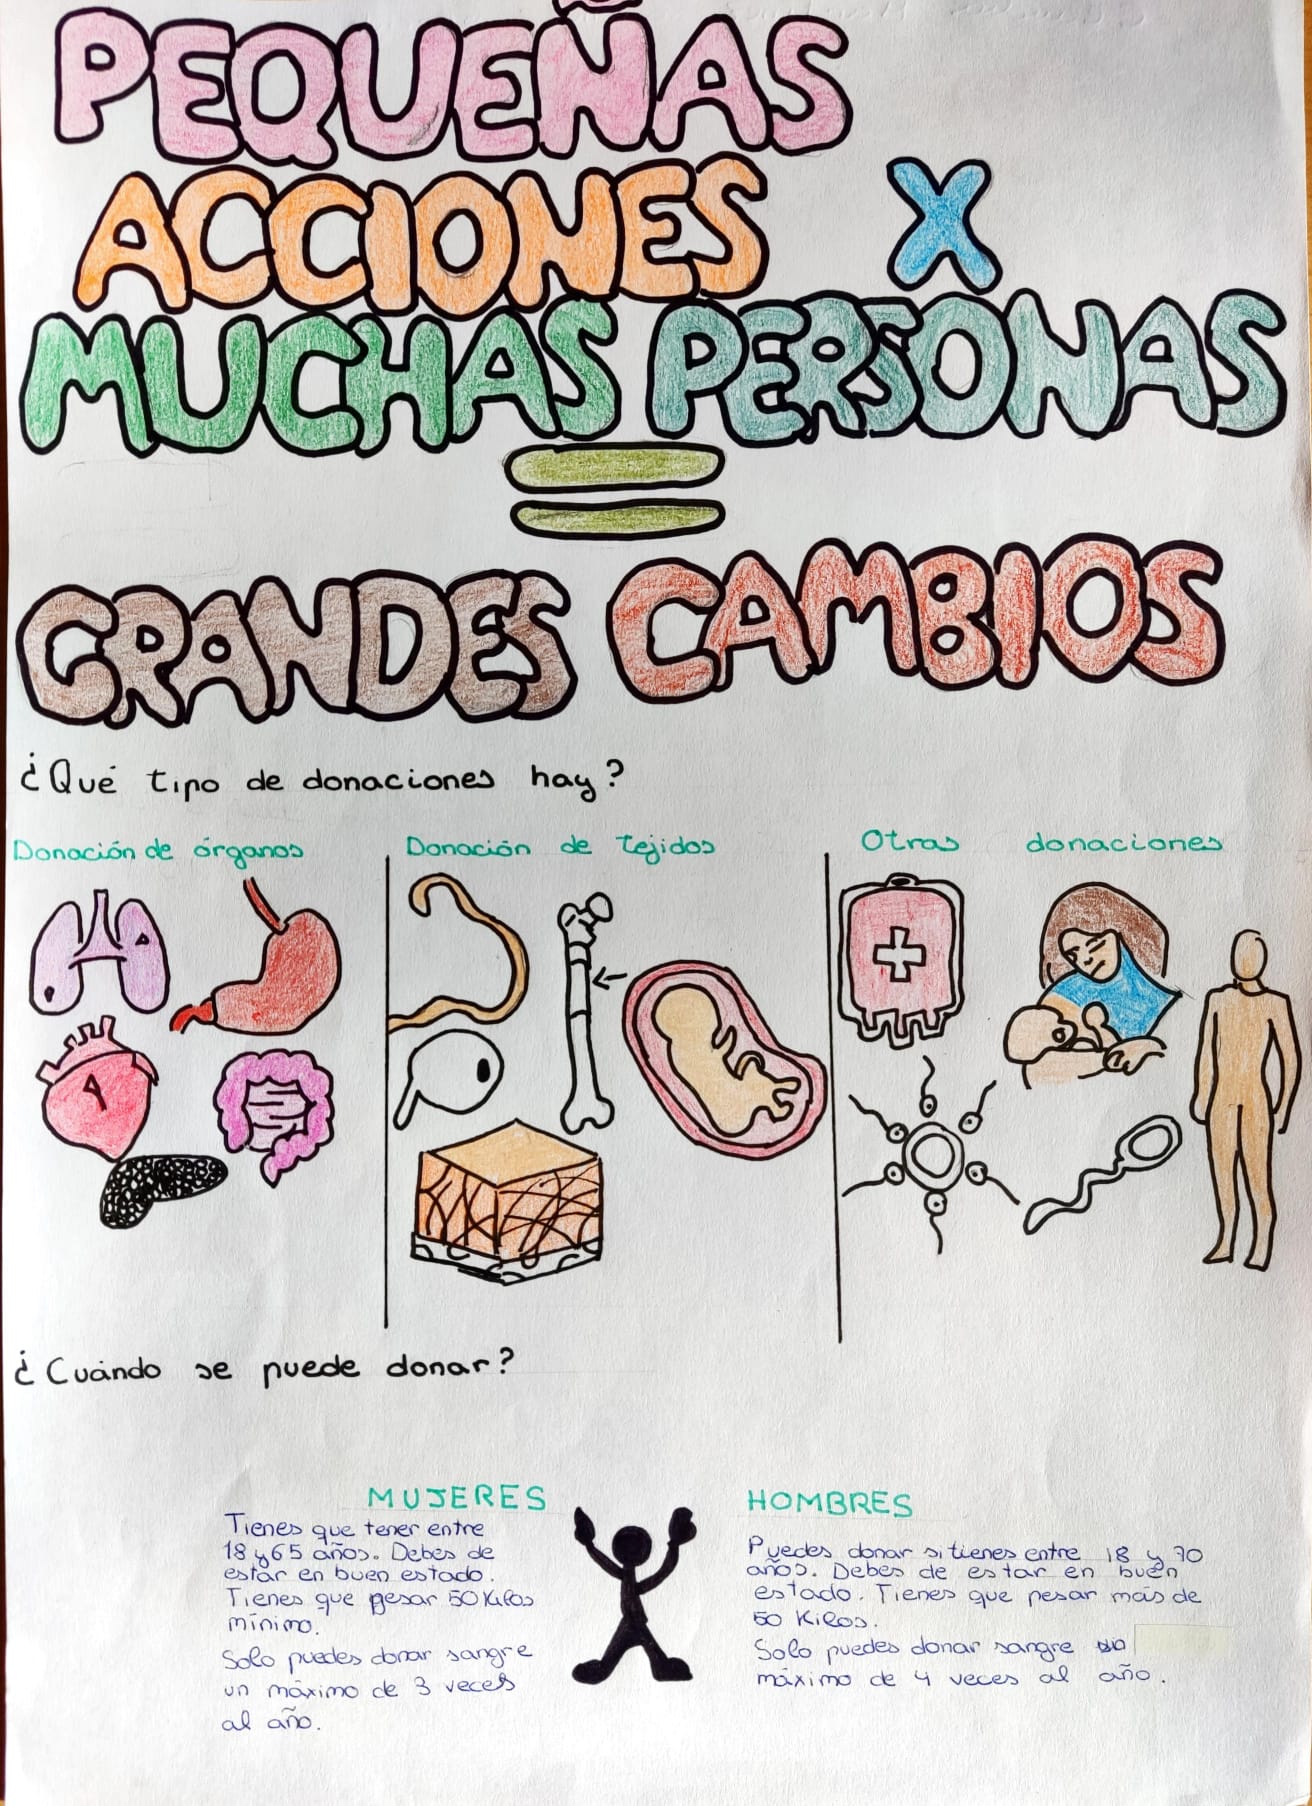 PEQUEÑAS
ACCIONES X
MUCHAS PERSONAS
=
GRANDES CAMBIOS
¿Qué tipo de donaciones hay?
Donación de órganos
Donación de tejidos
Otras donaciones
¿Cuándo se puede donar?
MUJERES
Tienes que tener entre
18 y 65 años. Debes de
estar en buen estado.
Tienes que pesar 50 Kilos
mínimo.
Solo puedes donar sangre
un máximo de 3 veces
al año.
HOMBRES
Puedes donar si tienes entre 18 y 70
años. Debes de estar en buen
estado. Tienes que pesar más de
50 Kilos.
Solo puedes donar sangre
máximo de 4 veces al año.